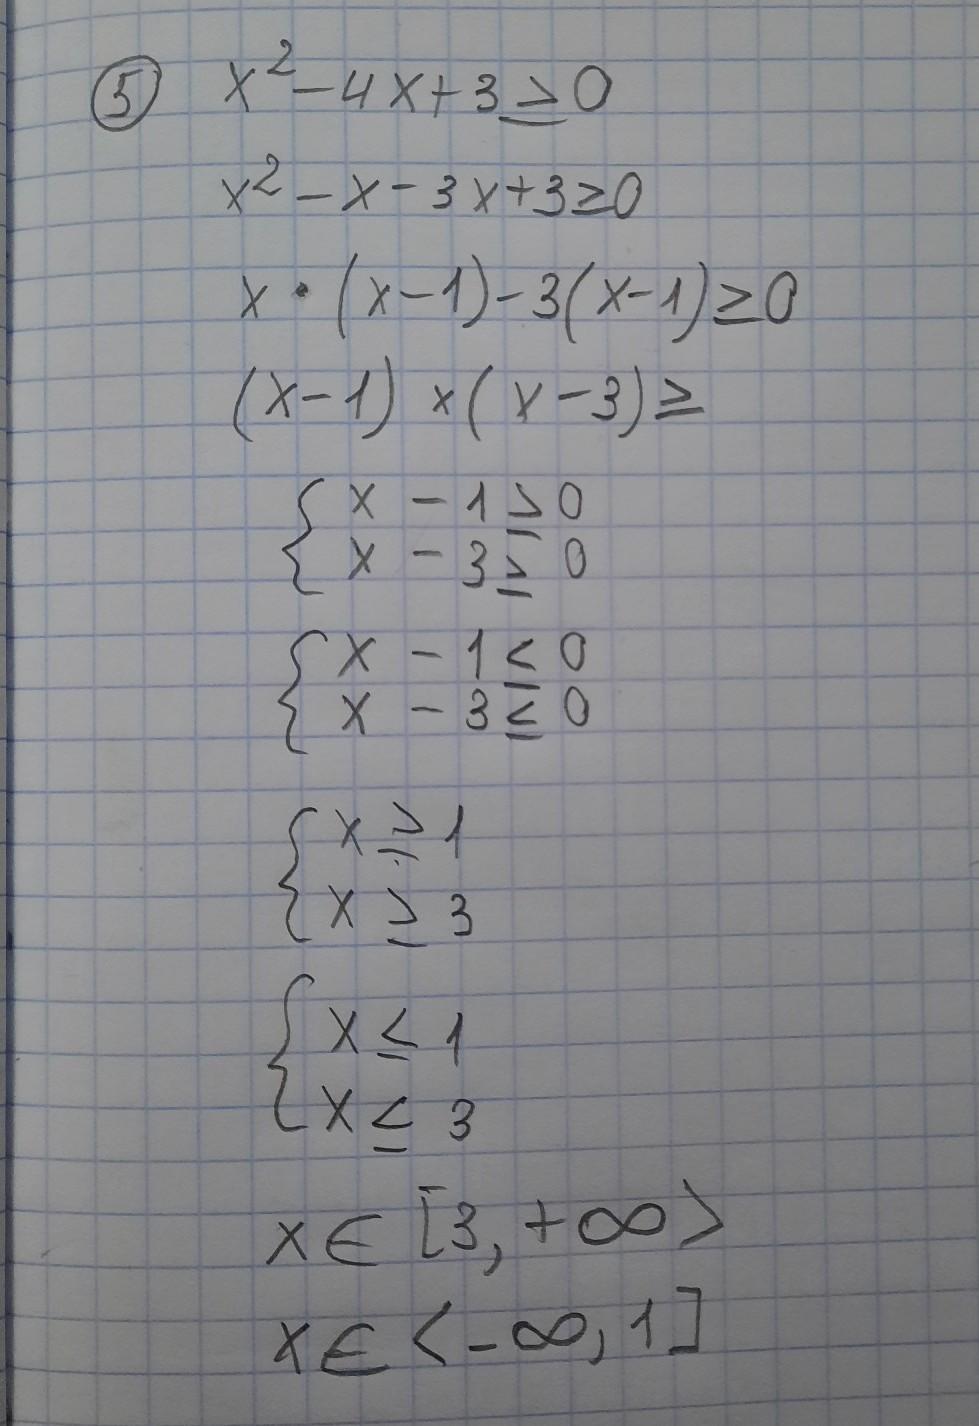 ⑤ x² - 4x + 3 ≥ 0
x² - x - 3x + 3 ≥ 0
x · (x - 1) - 3(x - 1) ≥ 0
(x - 1) × (x - 3) ≥
{ x - 1 ≥ 0
x - 3 ≥ 0
{ x - 1 ≤ 0
x - 3 ≤ 0
{ x ≥ 1
x ≥ 3
{ x ≤ 1
x ≤ 3
x ∈ [3, +∞>
x ∈ <-∞, 1]